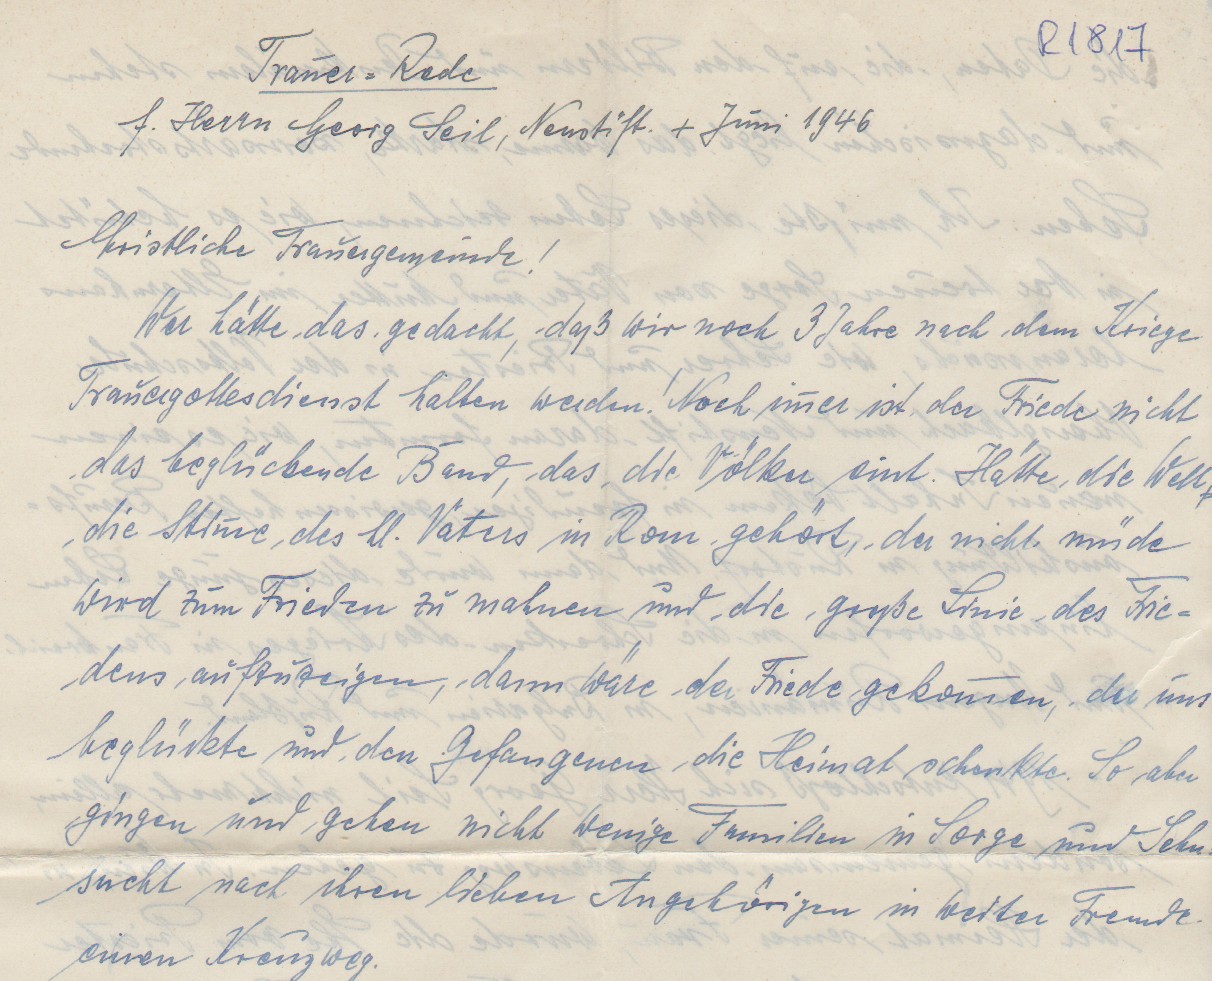 R1817
Trauer-Rede
f. Herrn Georg Seil, Neustift. + Juni 1946
Christliche Trauergemeinde!
Wer hätte das gedacht, daß wir noch 3 Jahre nach dem Kriege
Trauergottesdienst halten werden! Noch im̅er ist der Friede nicht
das beglückende Band, das die Völker eint. Hätte die Welt
die Stim̅e des hl. Vaters in Rom gehört, der nicht müde
wird zum Frieden zu mahnen und die große Linie des Frie=
dens aufzuzeigen, dann wäre der Friede gekom̅en, der uns
beglückte und den Gefangenen die Heimat schenkte. So aber
gingen und gehen nicht wenige Familien in Sorge und Sehn-
sucht nach ihren lieben Angehörigen in weiter Fremde
einen Kreuzweg.